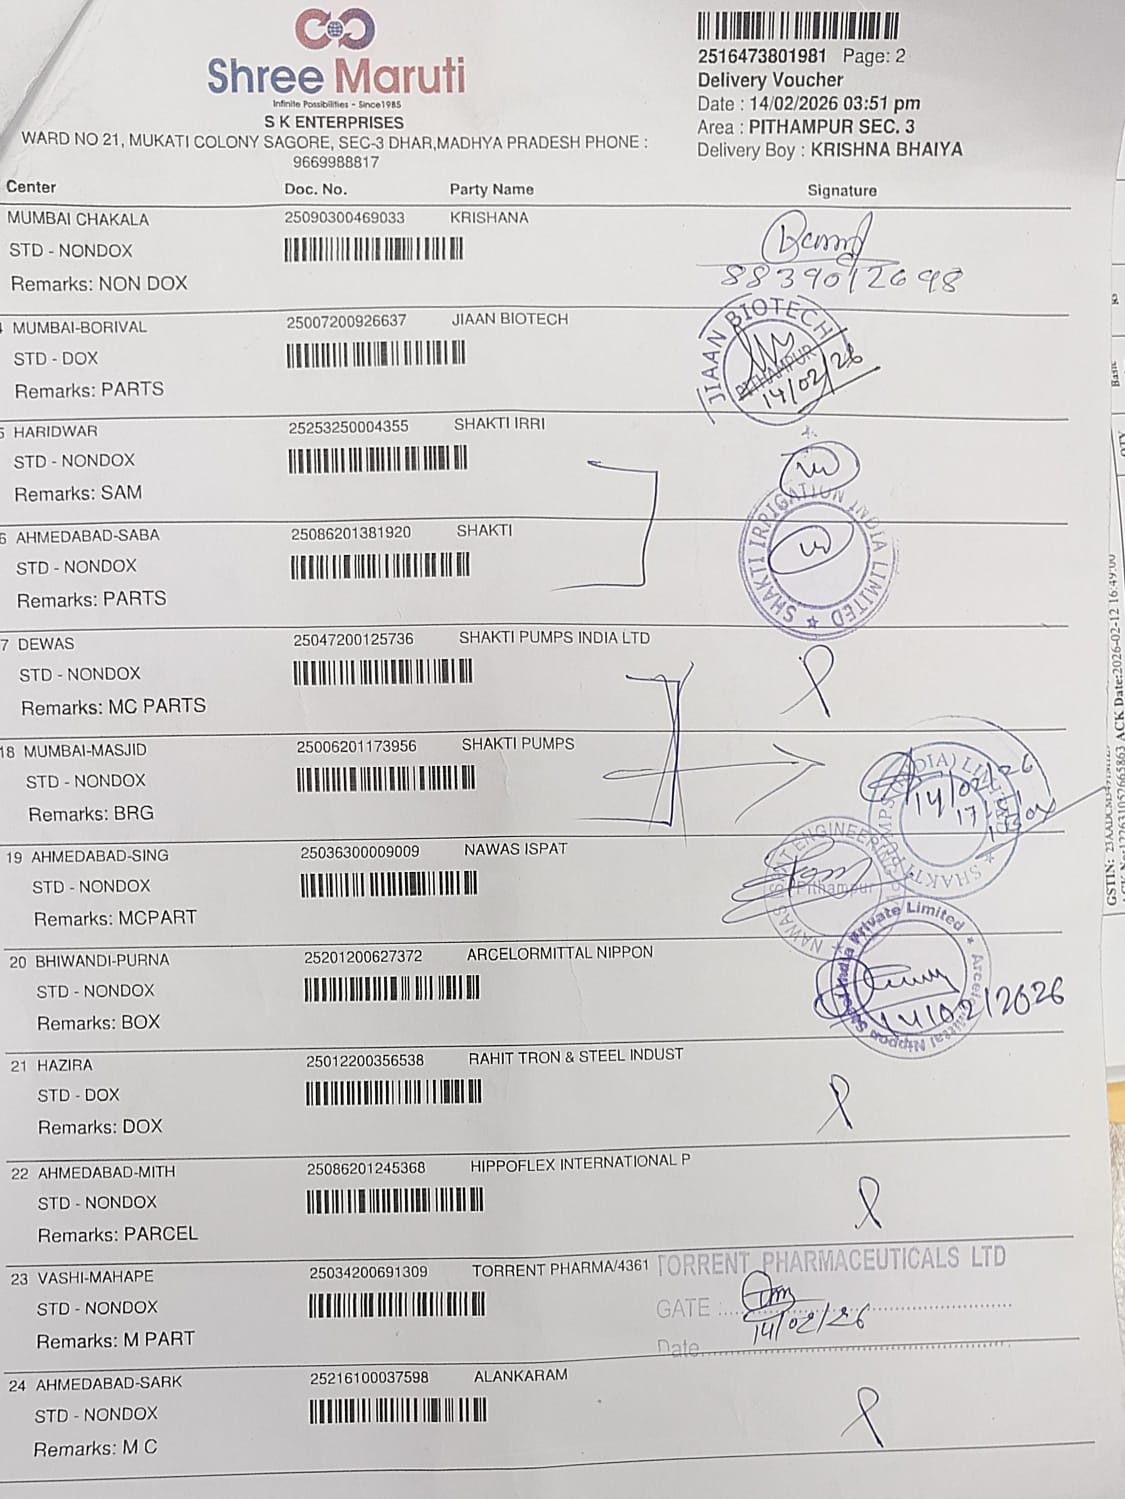 Shree Maruti
Infinite Possibilities - Since1985
S K ENTERPRISES
WARD NO 21, MUKATI COLONY SAGORE, SEC-3 DHAR,MADHYA PRADESH PHONE :
9669988817
2516473801981 Page: 2
Delivery Voucher
Date : 14/02/2026 03:51 pm
Area : PITHAMPUR SEC. 3
Delivery Boy : KRISHNA BHAIYA
Center Doc. No. Party Name Signature
MUMBAI CHAKALA 25090300469033 KRISHANA
STD - NONDOX
Remarks: NON DOX
8839012698
MUMBAI-BORIVAL 25007200926637 JIAAN BIOTECH
STD - DOX
Remarks: PARTS
JIAAN BIOTECH
PITHAMPUR
14/02/26
HARIDWAR 25253250004355 SHAKTI IRRI
STD - NONDOX
Remarks: SAM
6 AHMEDABAD-SABA 25086201381920 SHAKTI
STD - NONDOX
Remarks: PARTS
SHAKTI IRRIGATION INDIA LIMITED
7 DEWAS 25047200125736 SHAKTI PUMPS INDIA LTD
STD - NONDOX
Remarks: MC PARTS
18 MUMBAI-MASJID 25006201173956 SHAKTI PUMPS
STD - NONDOX
Remarks: BRG
SHAKTI PUMPS (INDIA) LIMITED
14/02/26
19 AHMEDABAD-SING 25036300009009 NAWAS ISPAT
STD - NONDOX
Remarks: MCPART
NAWAS ISPAT ENGINEERING
Pithampur
20 BHIWANDI-PURNA 25201200627372 ARCELORMITTAL NIPPON
STD - NONDOX
Remarks: BOX
Arcelormittal Nippon Steel India Private Limited
14/02/2026
21 HAZIRA 25012200356538 RAHIT TRON & STEEL INDUST
STD - DOX
Remarks: DOX
22 AHMEDABAD-MITH 25086201245368 HIPPOFLEX INTERNATIONAL P
STD - NONDOX
Remarks: PARCEL
23 VASHI-MAHAPE 25034200691309 TORRENT PHARMA/4361
STD - NONDOX
Remarks: M PART
TORRENT PHARMACEUTICALS LTD
GATE :
14/02/26
Date
24 AHMEDABAD-SARK 25216100037598 ALANKARAM
STD - NONDOX
Remarks: M C
Basic
QTY
ACK Date:2026-02-12 16:49:00
GSTIN: